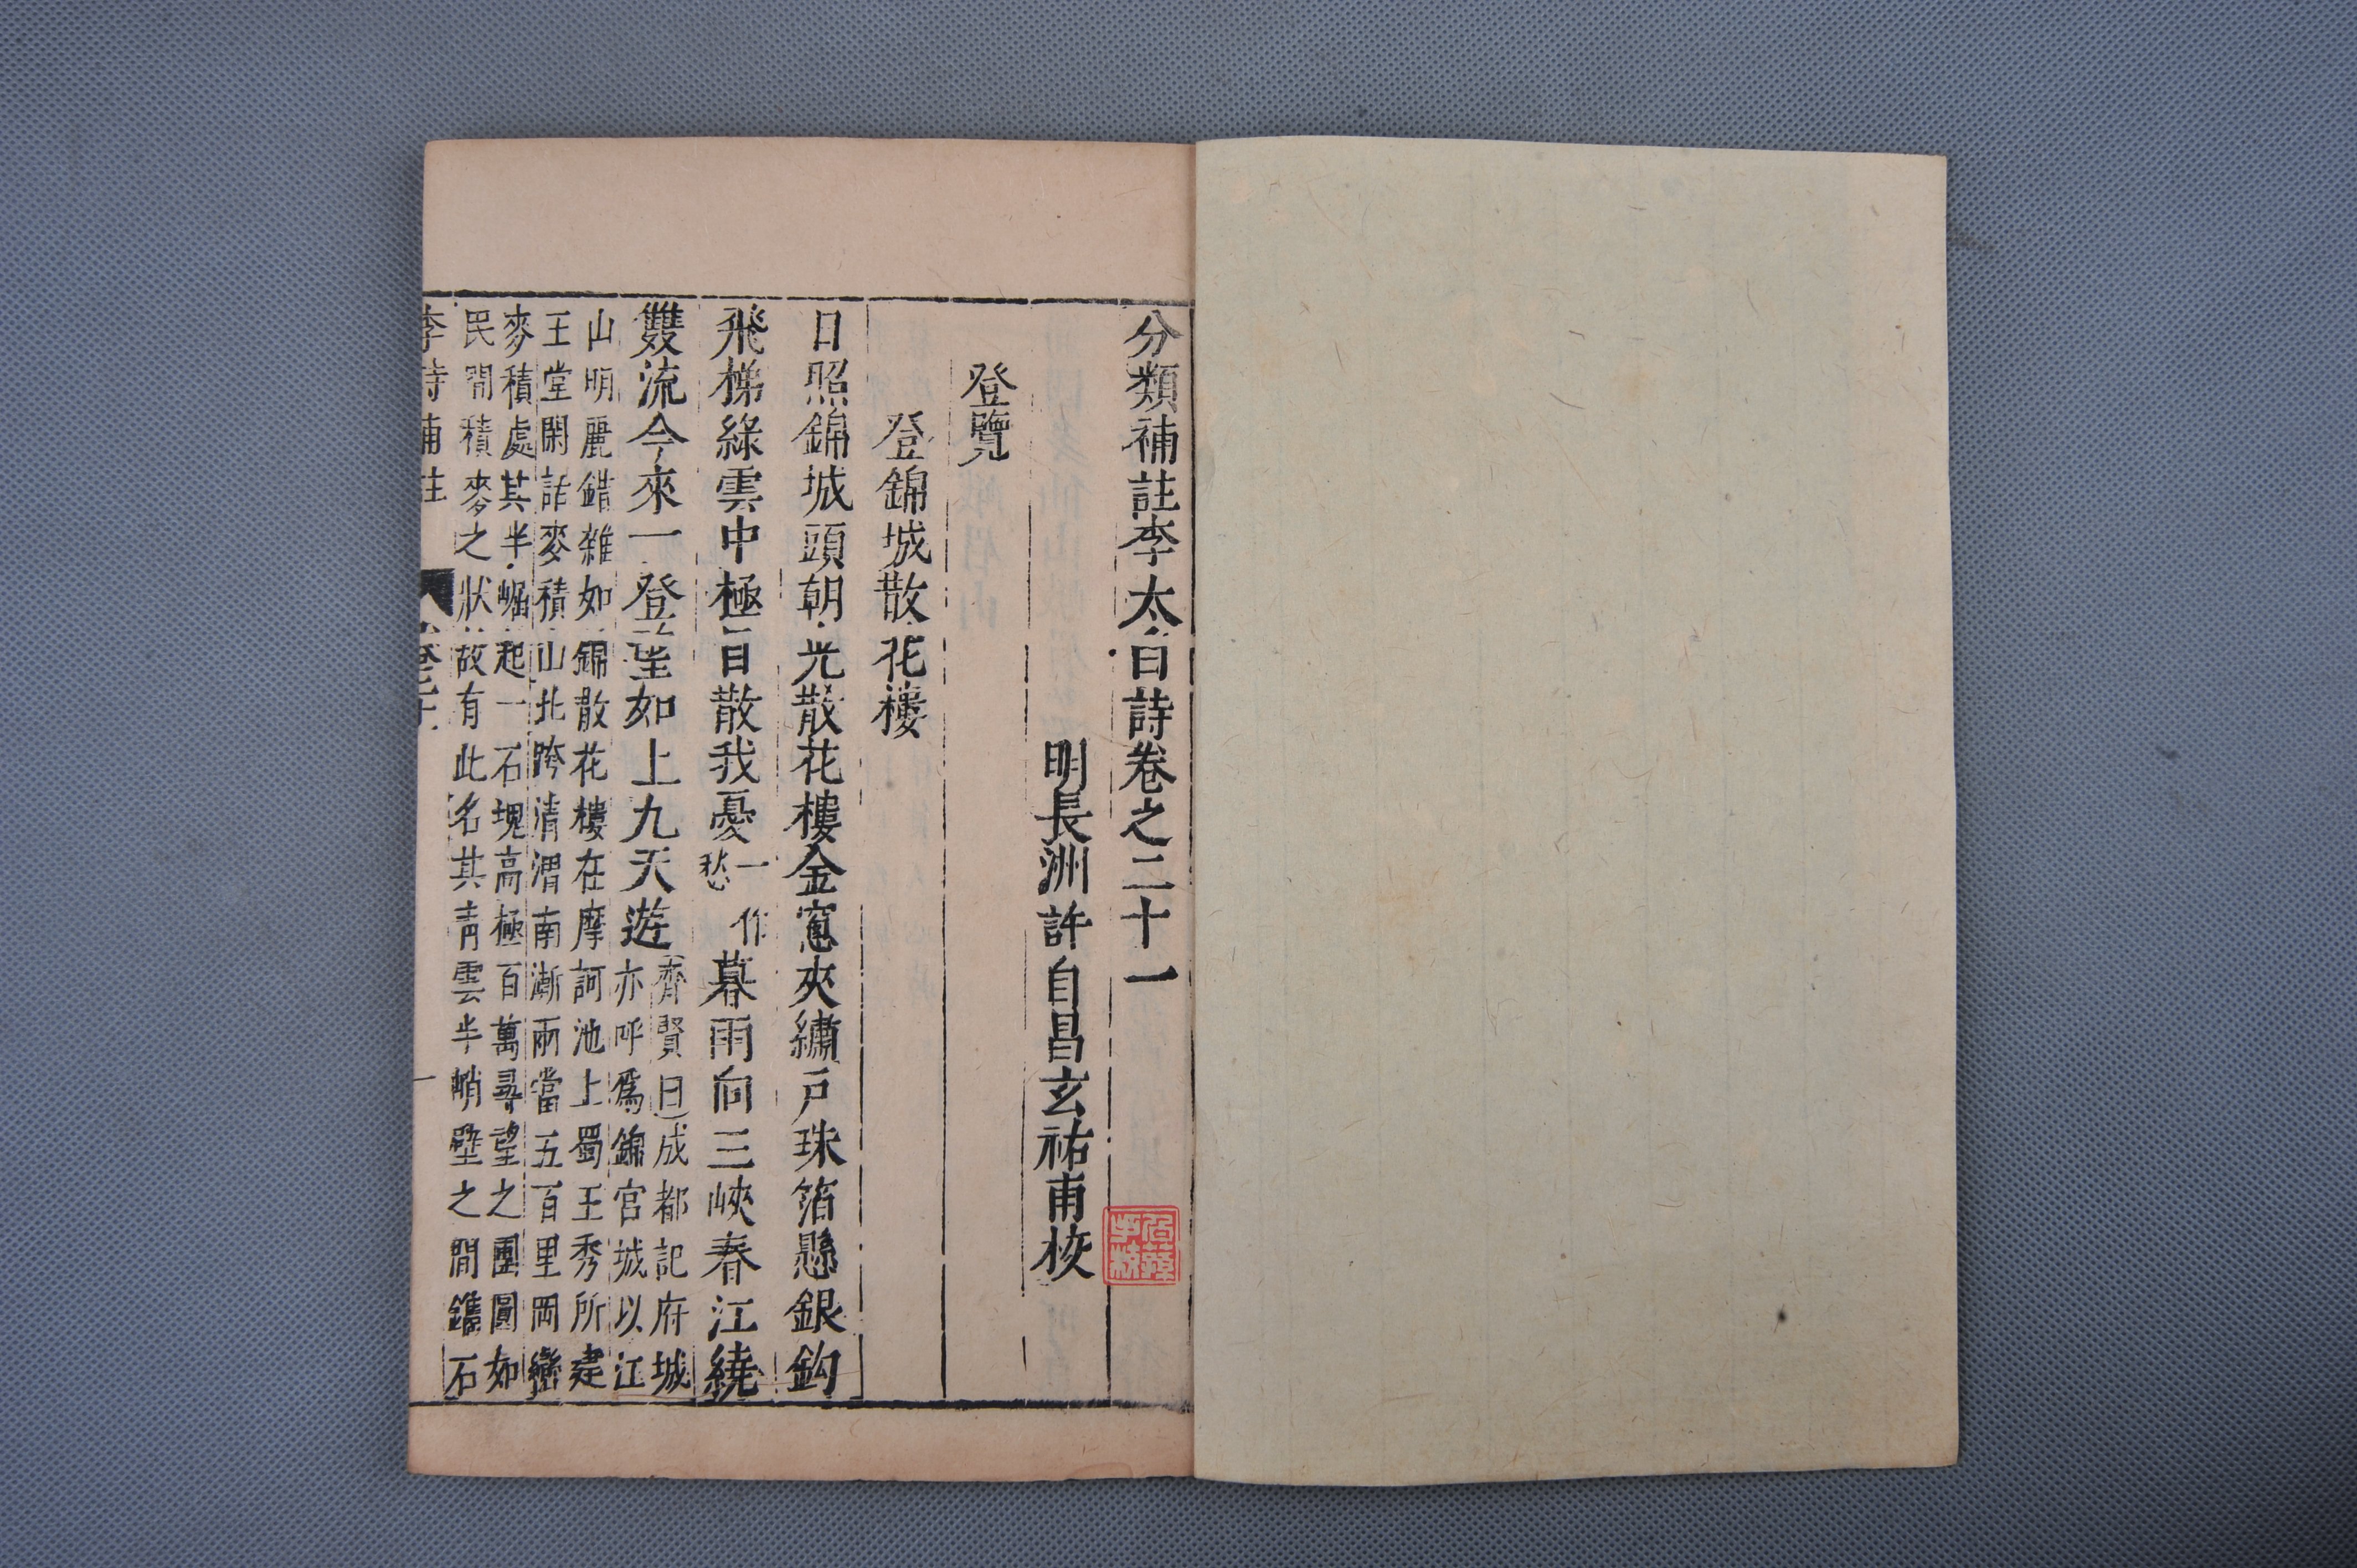 分類補註李太白詩卷之二十一
明長洲許自昌玄祐甫校
登覽
登錦城散花樓
日照錦城頭朝光散花樓金窗夾繡戶珠箔懸銀鈎
飛梯綠雲中極目散我憂一作愁暮雨向三峽春江繞
雙流今來一登望如上九天遊
齊賢曰成都記府城
亦呼爲錦官城以江
山明麗錯雜如錦散花樓在摩訶池上蜀王秀所建
王堂閑話麥積山北跨清渭南漸兩當五百里岡巒
麥積處其半崛起一石塊高極百萬尋望之團圓如
民間積麥之狀故有此名其青雲半峭壁之間鐫石
李詩補註
卷二十一
一